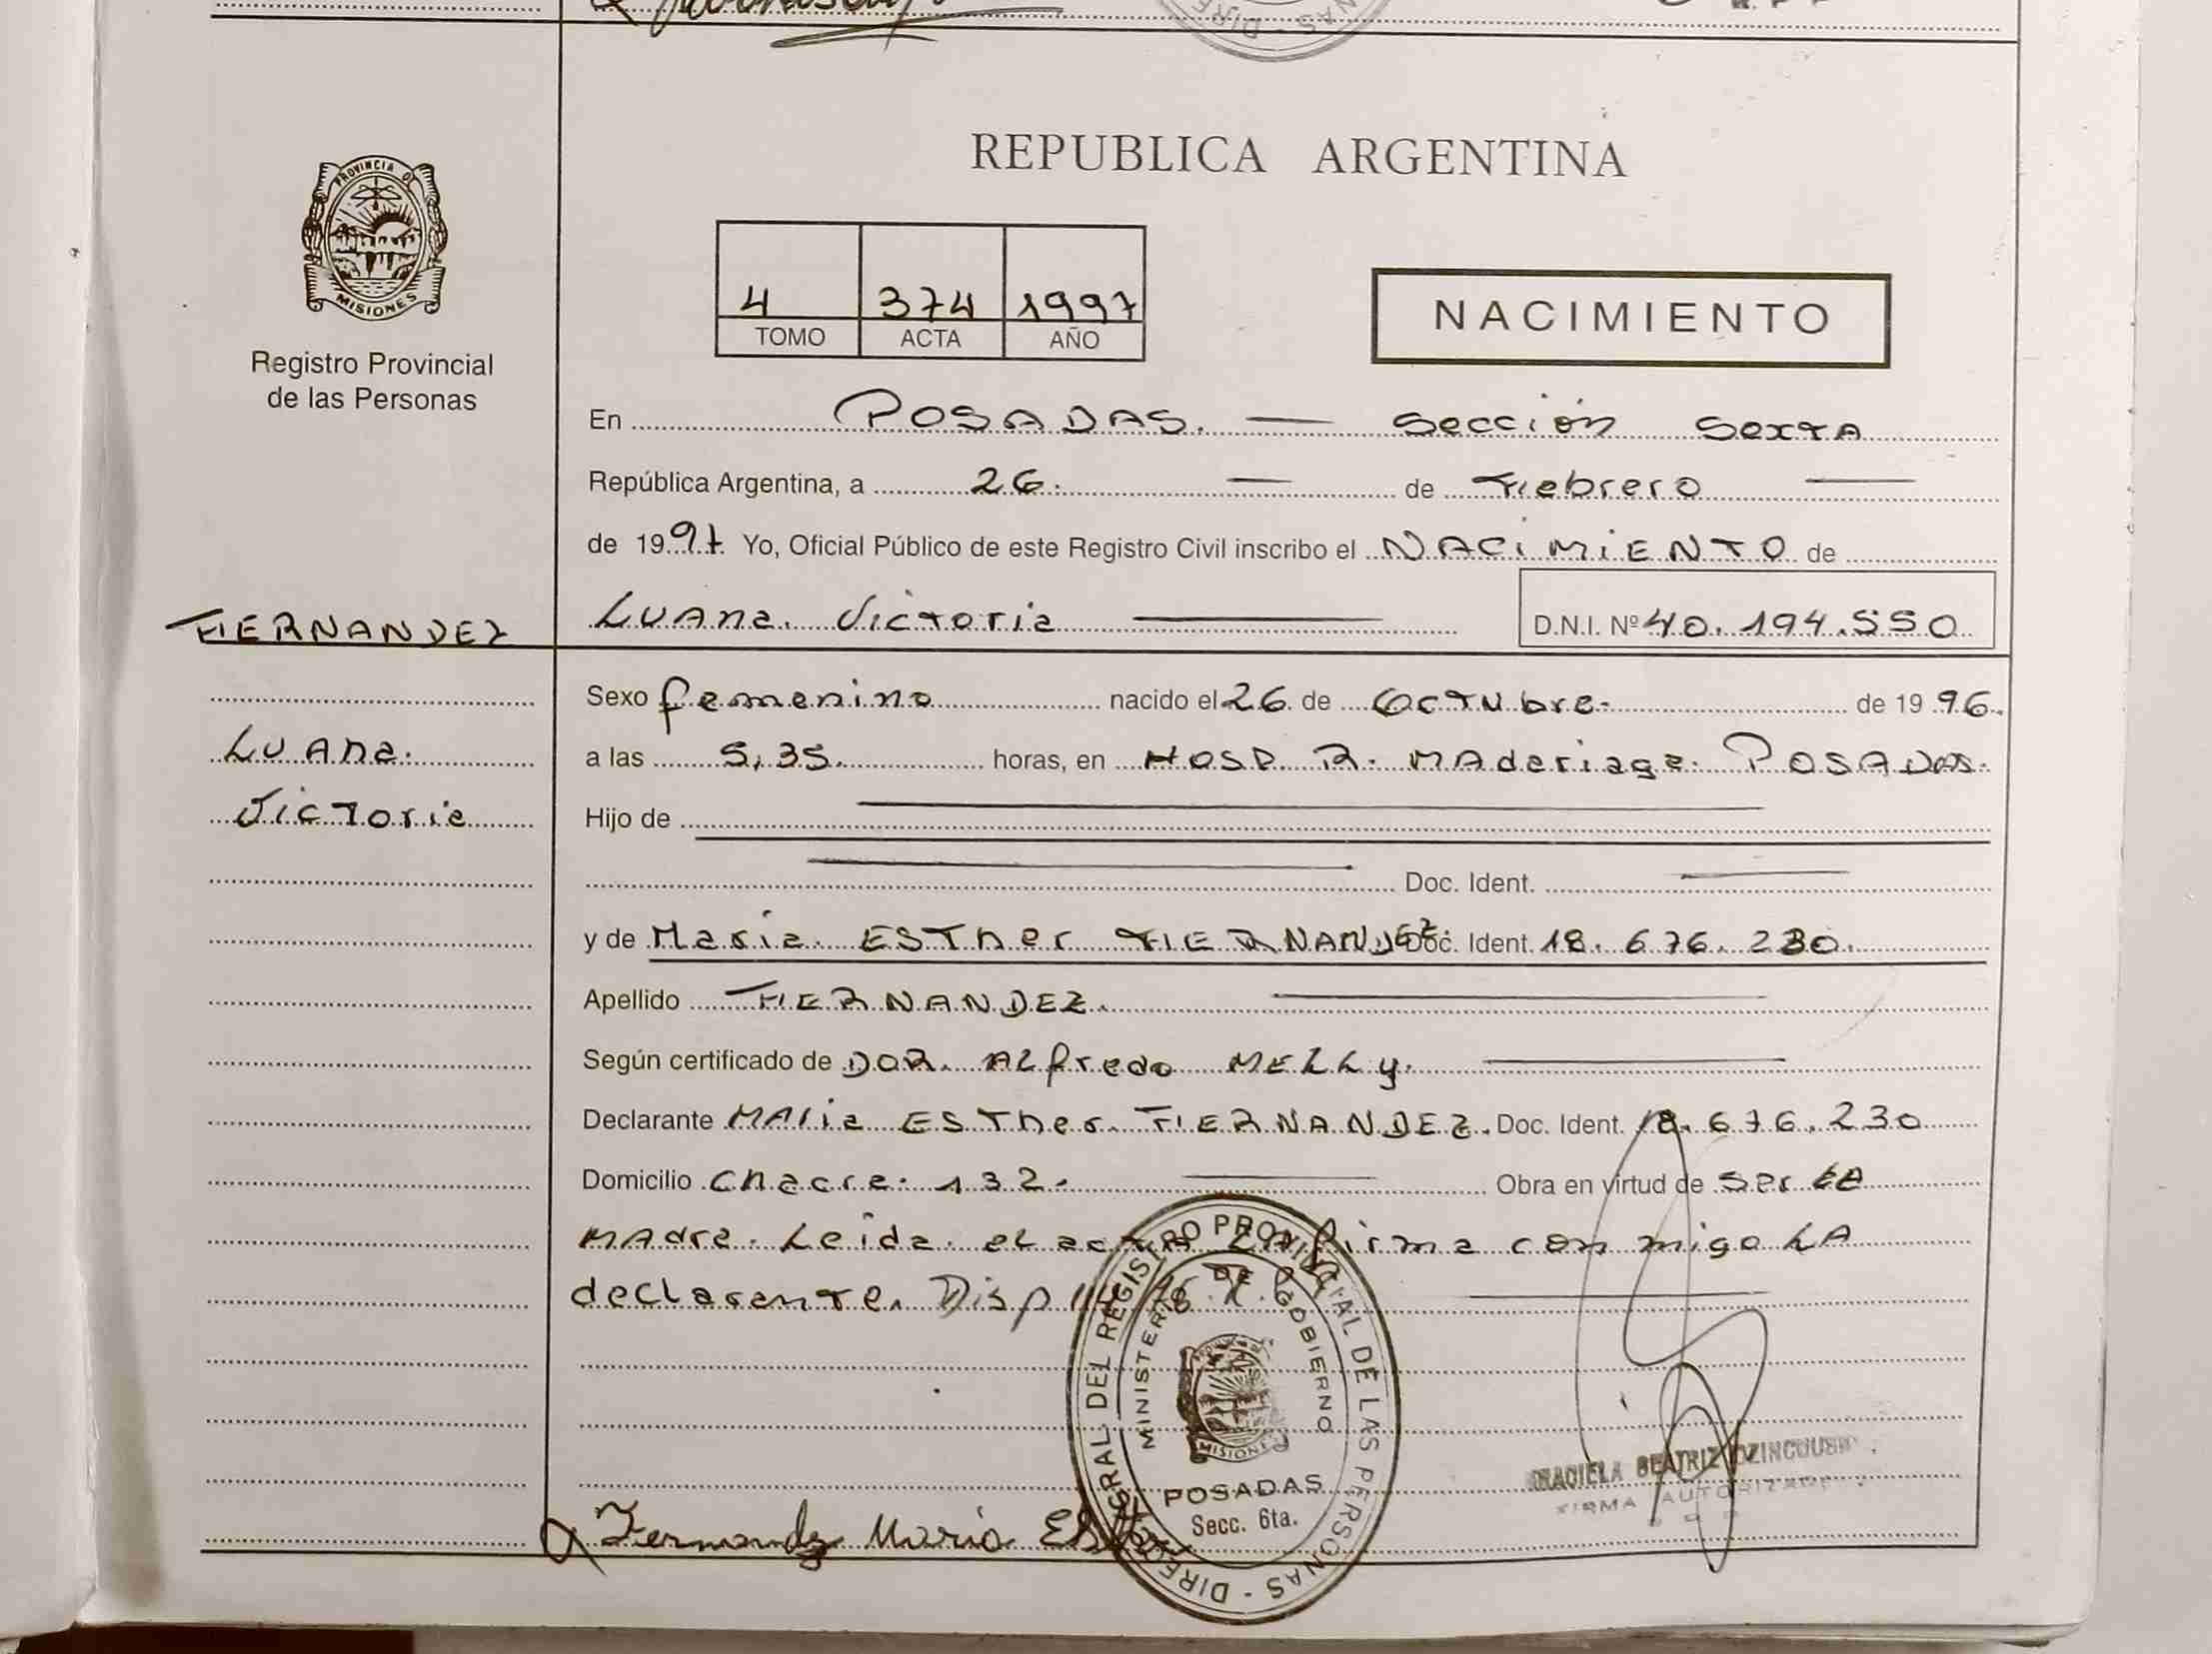 PROVINCIA DE
MISIONES
Registro Provincial
de las Personas
FERNANDEZ
Luana.
Victoria
REPUBLICA ARGENTINA
4 374 1997
TOMO ACTA AÑO
NACIMIENTO
En POSADAS. — Sección Sexta
República Argentina, a 26. — de Febrero —
de 1997. Yo, Oficial Público de este Registro Civil inscribo el NACIMIENTO de
Luana. Victoria — D.N.I. Nº 40.194.550
Sexo femenino nacido el 26 de Octubre. de 1996.
a las 5,35. horas, en Hosp. R. Madariaga. POSADAS.
Hijo de —
— Doc. Ident. —
y de Maria. ESTher FERNANDEZ. Doc. Ident. 18.676.230.
Apellido FERNANDEZ. —
Según certificado de DOR. Alfredo MELLy. —
Declarante Maria ESTher. FERNANDEZ. Doc. Ident. 18.676.230
Domicilio Chacra. 132. — Obra en virtud de Ser LA
Madre. Leida. el acta LA firma con migo LA
declarante. Disp —
DIRECCION GRAL. DEL REGISTRO PROVINCIAL DE LAS PERSONAS -
MINISTERIO DE GOBIERNO
MISIONES
POSADAS
Secc. 6ta.
GRACIELA BEATRIZ
FIRMA AUTORIZADA
Fernandez Maria Esther